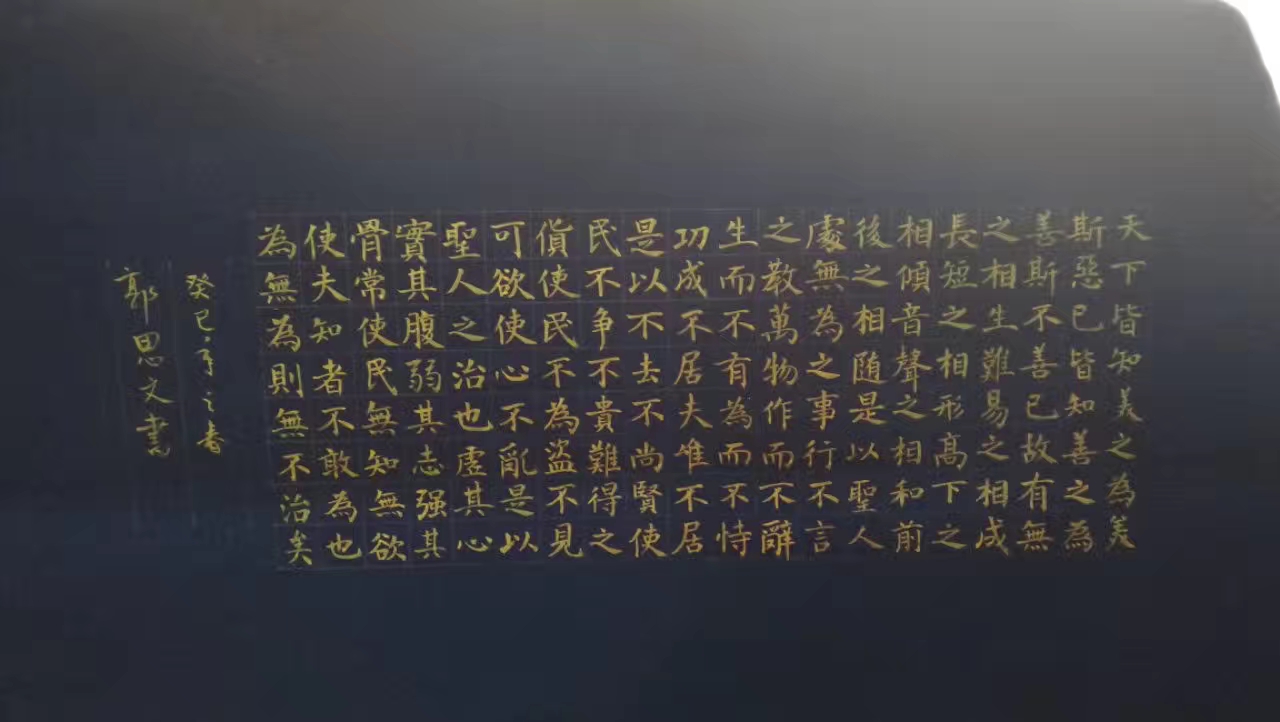 天下皆知美之為美
斯惡已皆知善之為
善斯不善已故有無
之相生難易之相成
長短之相形高下之
相傾音聲之相和前
後之相随是以聖人
處無為之事行不言
之教萬物作而不辭
生而不有為而不恃
功成不居夫唯不居
是以不去不尚賢使
民不争不貴難得之
貨使民不為盜不見
可欲使心不亂是以
聖人之治也虛其心
實其腹弱其志强其
骨常使民無知無欲
使夫知者不敢為也
為無為則無不治矣
癸巳年之春
郭思文書